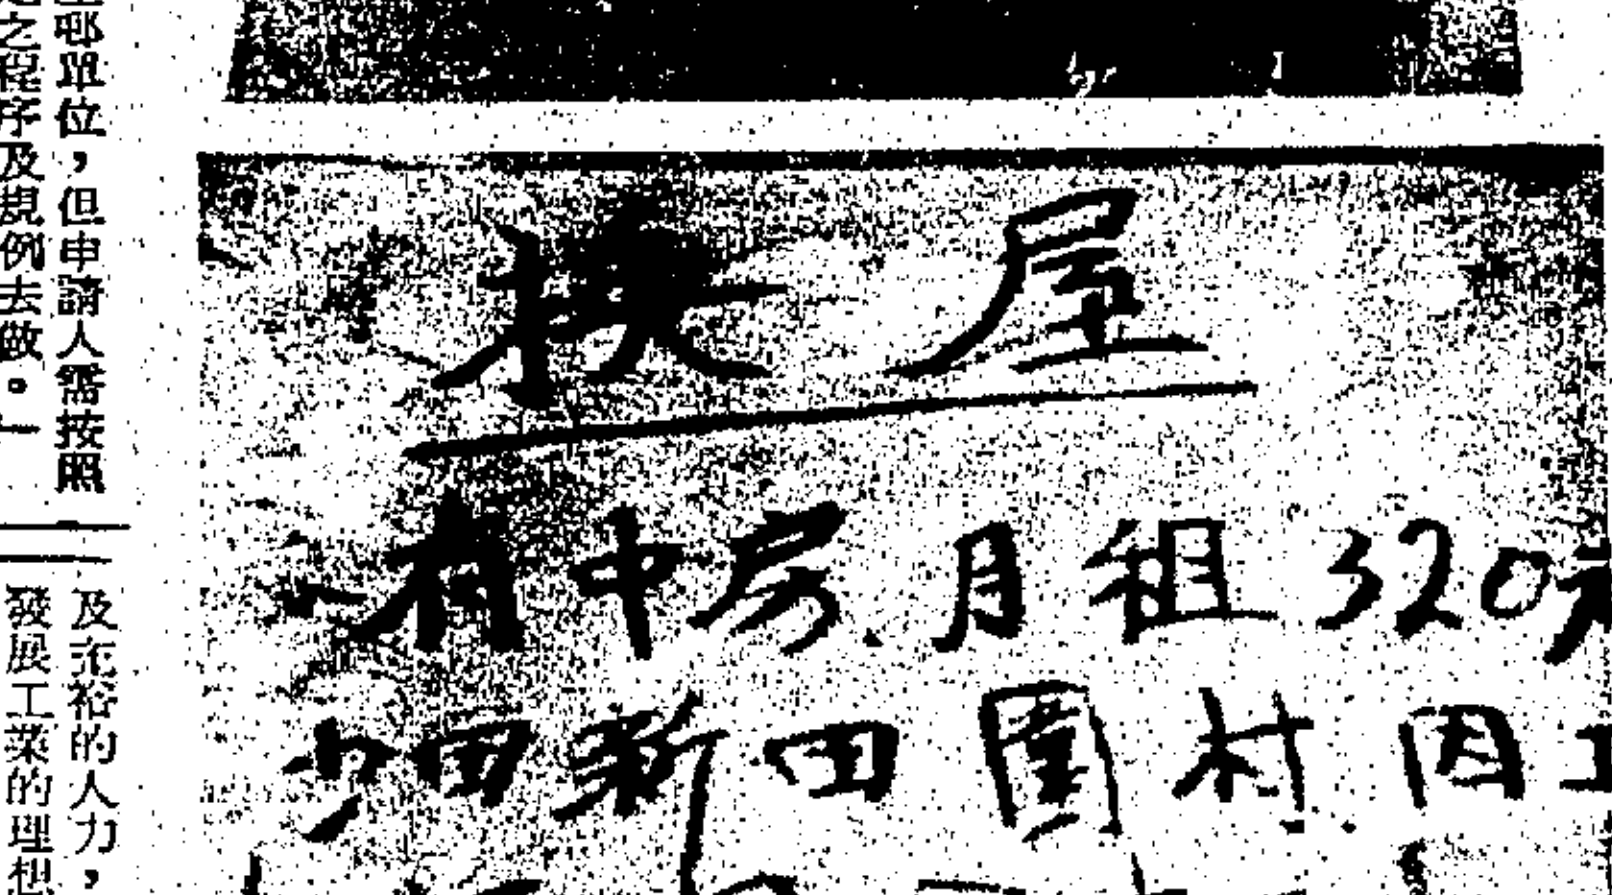 單位，但申請人需按照
之程序及規例去做。」
及充裕的人力，
發展工業的理想
换屋
有中房．月租320元
沙田新田圍村因